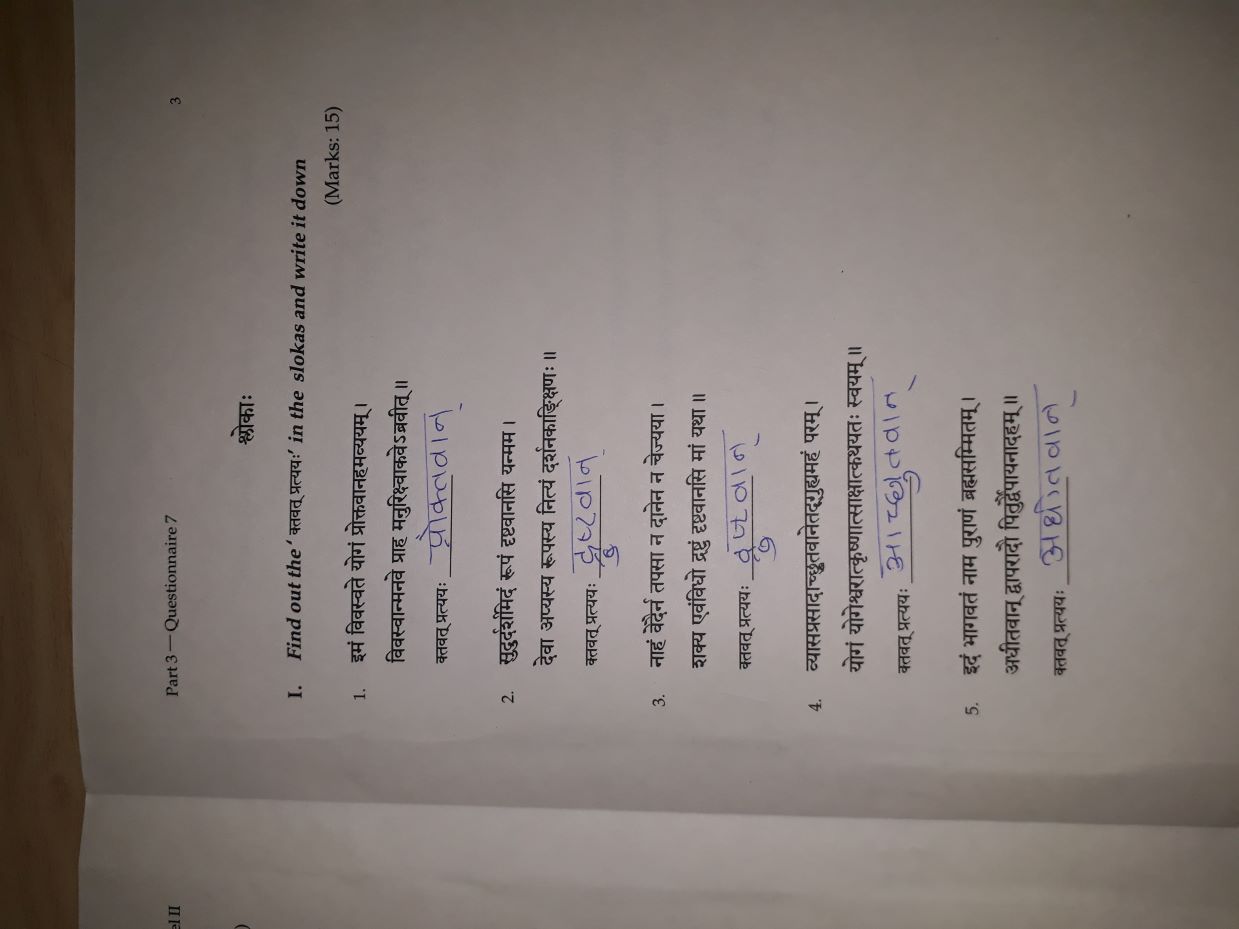 el II
Part 3 — Questionnaire 7
3
)
श्लोकाः
I. Find out the ‘ क्तवत् प्रत्ययः’ in the slokas and write it down
(Marks: 15)
1. इमं विवस्वते योगं प्रोक्तवानहमव्ययम् ।
विवस्वान्मनवे प्राह मनुरिक्ष्वाकवेऽब्रवीत् ॥
क्तवत् प्रत्ययः प्रोक्तवान्
2. सुदुर्दर्शमिदं रूपं दृष्टवानसि यन्मम ।
देवा अप्यस्य रूपस्य नित्यं दर्शनकाङ्क्षिणः ॥
क्तवत् प्रत्ययः दृष्टवान्
3. नाहं वेदैर्न तपसा न दानेन न चेज्यया ।
शक्य एवंविधो द्रष्टुं दृष्टवानसि मां यथा ॥
क्तवत् प्रत्ययः दृष्टवान्
4. व्यासप्रसादाच्छ्रुतवानेतद्गुह्यमहं परम् ।
योगं योगेश्वरात्कृष्णात्साक्षात्कथयतः स्वयम् ॥
क्तवत् प्रत्ययः आच्छ्रुतवान्
5. इदं भागवतं नाम पुराणं ब्रह्मसम्मितम् ।
अधीतवान् द्वापरादौ पितुर्द्वैपायनादहम् ॥
क्तवत् प्रत्ययः अधीतवान्